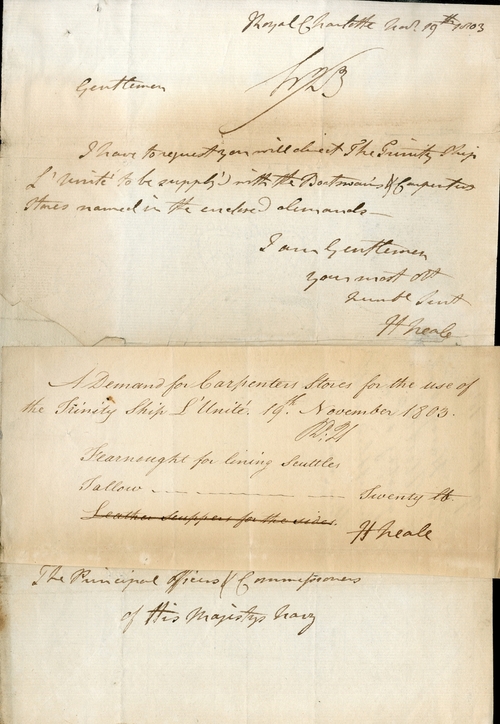 Royal Charlotte Novr. 19th 1803
Gentlemen
I have to request you will direct The Trinity Ship
L'Unité to be supply'd with the Boatswains & Carpenters
Stores named in the enclosed demands—
I am Gentlemen
your most obt
humble Servt
H Neale
A Demand for Carpenters Stores for the use of
the Trinity Ship L'Unité. 19th. November 1803.
Fearnought for lining Scuttles
Tallow — — — — Twenty lb
Leather Scuppers for the sides.
H Neale
The Principal Officers & Commissioners
of His Majestys Navy